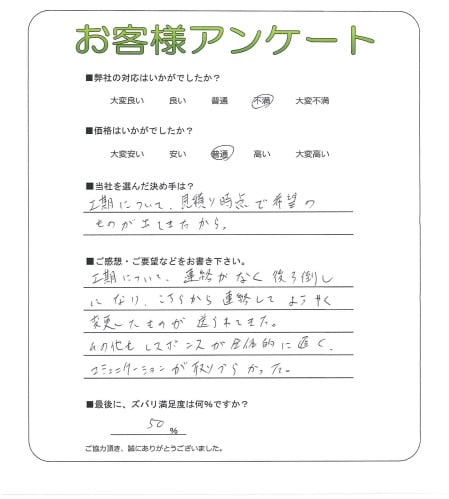 お客様アンケート
■弊社の対応はいかがでしたか？
大変良い 良い 普通 不満 大変不満
■価格はいかがでしたか？
大変安い 安い 普通 高い 大変高い
■当社を選んだ決め手は？
工期について、見積り時点で希望の
ものが出てきたから。
■ご感想・ご要望などをお書き下さい。
工期について、連絡がなく後ろ倒し
になり、こちらから連絡してようやく
変更したものが送られてきた。
その他もレスポンスが全体的に遅く、
コミュニケーションが取りづらかった。
■最後に、ズバリ満足度は何%ですか？
50 %
ご協力頂き、誠にありがとうございました。